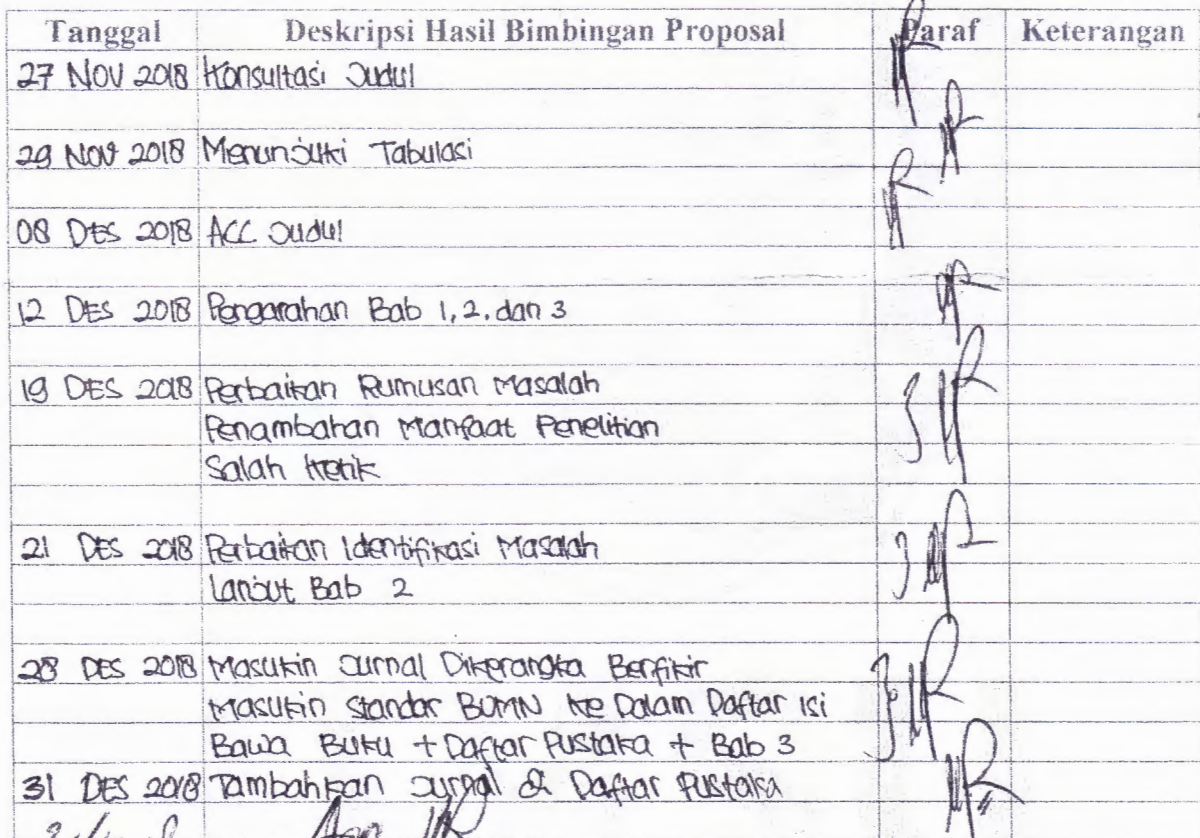 Tanggal Deskripsi Hasil Bimbingan Proposal Paraf Keterangan
27 NOV 2018 Konsultasi Judul
29 NOV 2018 Menunjuki Tabulasi
08 DES 2018 ACC Judul
12 DES 2018 Pengarahan Bab 1, 2, dan 3
19 DES 2018 Perbaikan Rumusan Masalah
Penambahan Manfaat Penelitian
Salah Ketik
21 DES 2018 Perbaikan Identifikasi Masalah
Lanjut Bab 2
28 DES 2018 Masukin Jurnal Dikerangka Berfikir
Masukin Standar BUMN ke Dalam Daftar Isi
Bawa Buku + Daftar Pustaka + Bab 3
31 DES 2018 Tambahkan Jurnal di Daftar Pustaka